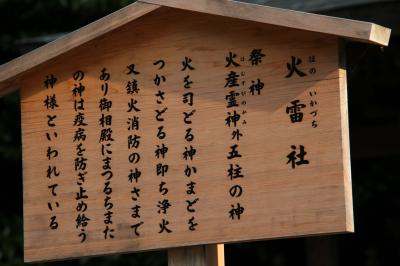 ほの いかづち
火雷社
祭神
ほむすびのかみ
火産霊神外五柱の神
火を司どる神かまどを
つかさどる神即ち浄火
又鎮火消防の神さまで
あり御相殿にまつるちまた
の神は疫病を防ぎ止め給う
神様といわれている